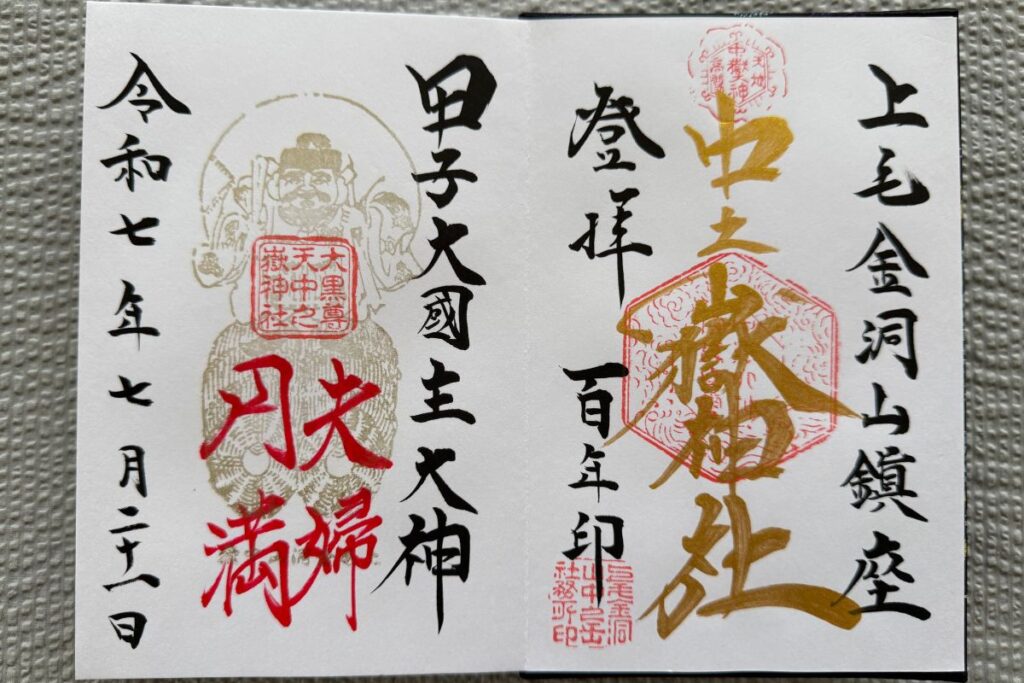 上毛金洞山鎮座
中之嶽神社
登拝 百年印
上毛金洞
山中之岳
社務所印
甲子大國主大神
大黒尊
天中之
嶽神社
夫婦
円満
令和七年七月二十一日